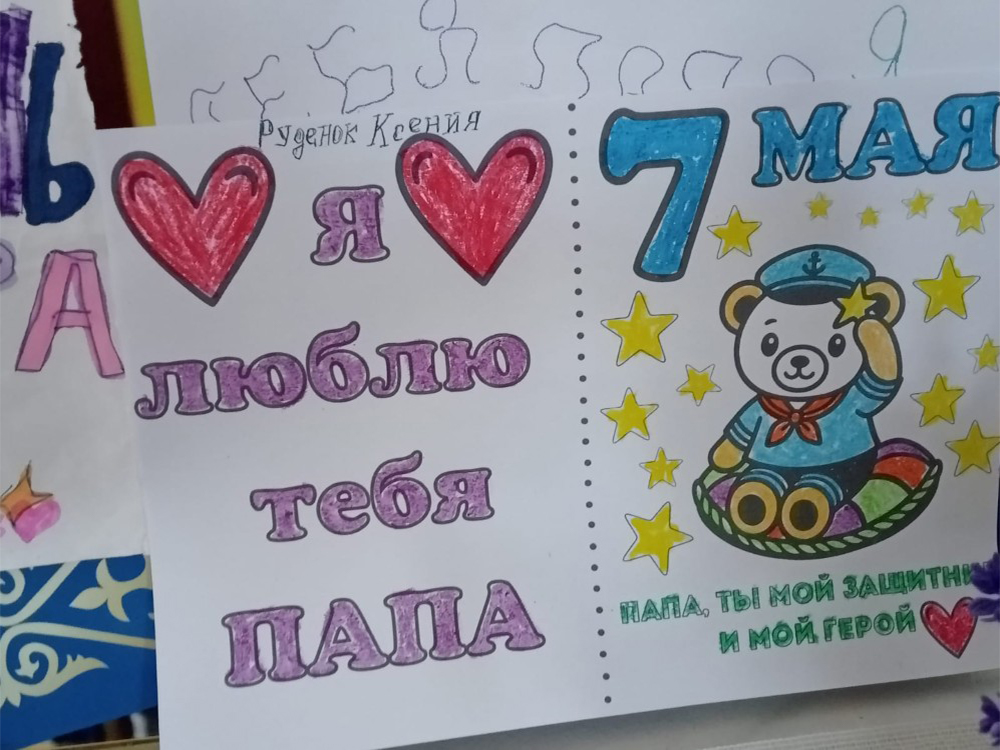 Руденок Ксения
Я
люблю
тебя
ПАПА
7 МАЯ
ПАПА, ТЫ МОЙ ЗАЩИТНИ
И МОЙ ГЕРОЙ
Ь
А